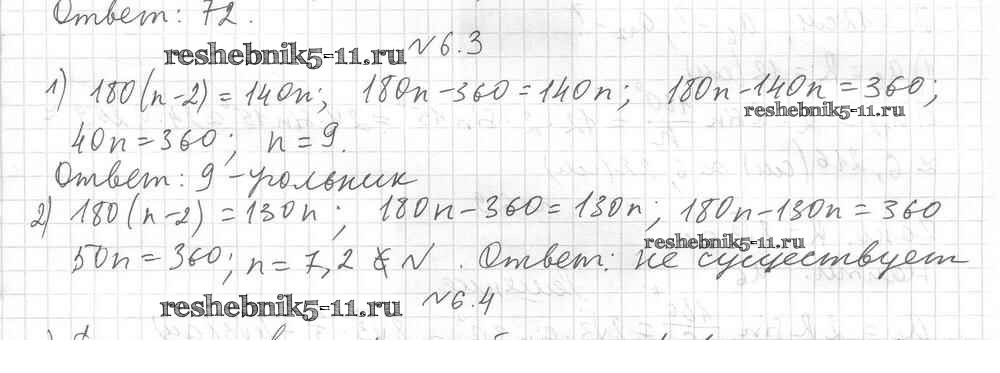 Ответ: 72.
reshebnik5-11.ru №6.3
1) 180(n-2)=140n; 180n-360=140n; 180n-140n=360;
reshebnik5-11.ru
40n=360; n=9.
Ответ: 9-угольник
2) 180(n-2)=130n; 180n-360=130n; 180n-130n=360
reshebnik5-11.ru
50n=360; n=7,2 ∉ N. Ответ: не существует
reshebnik5-11.ru №6.4